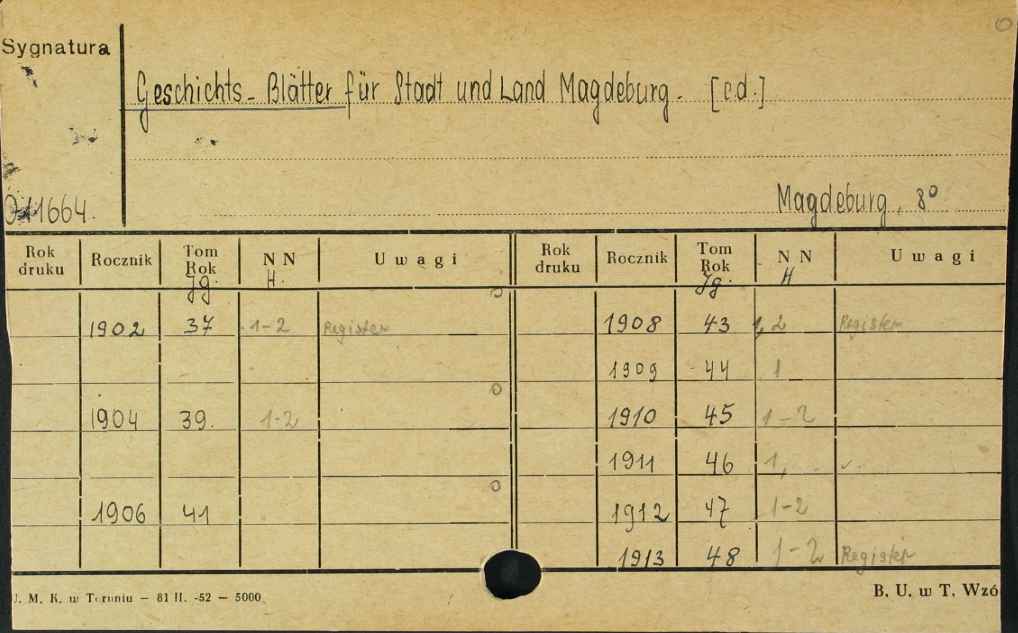 Sygnatura
Geschichts-Blätter für Stadt und Land Magdeburg. [c.d.]
011664.
Magdeburg, 8°
Rok druku Rocznik Tom Rok NN Uwagi Rok druku Rocznik Tom Rok NN Uwagi
Jg. H. Jg. H
1902 37 1-2 Register 1908 43 1, 2 Register
1909 44 1
1904 39. 1-2 1910 45 1-2
1911 46 1,
1906 41 1912 47 1-2
1913 48 1-2 Register
U. M. K. w Toruniu — 81 II. -52 — 5000
B. U. w T. Wzó